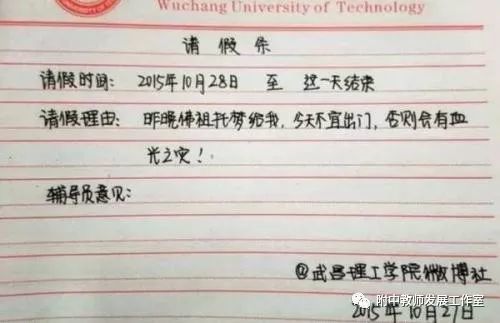 Wuchang University of Technology
请假条
请假时间： 2015年10月28日 至 这一天结束
请假理由： 昨晚佛祖托梦给我，今天不宜出门，否则会有血
光之灾！
辅导员意见：
@武昌理工学院微博社
附中教师发展工作室
2015年10月27日